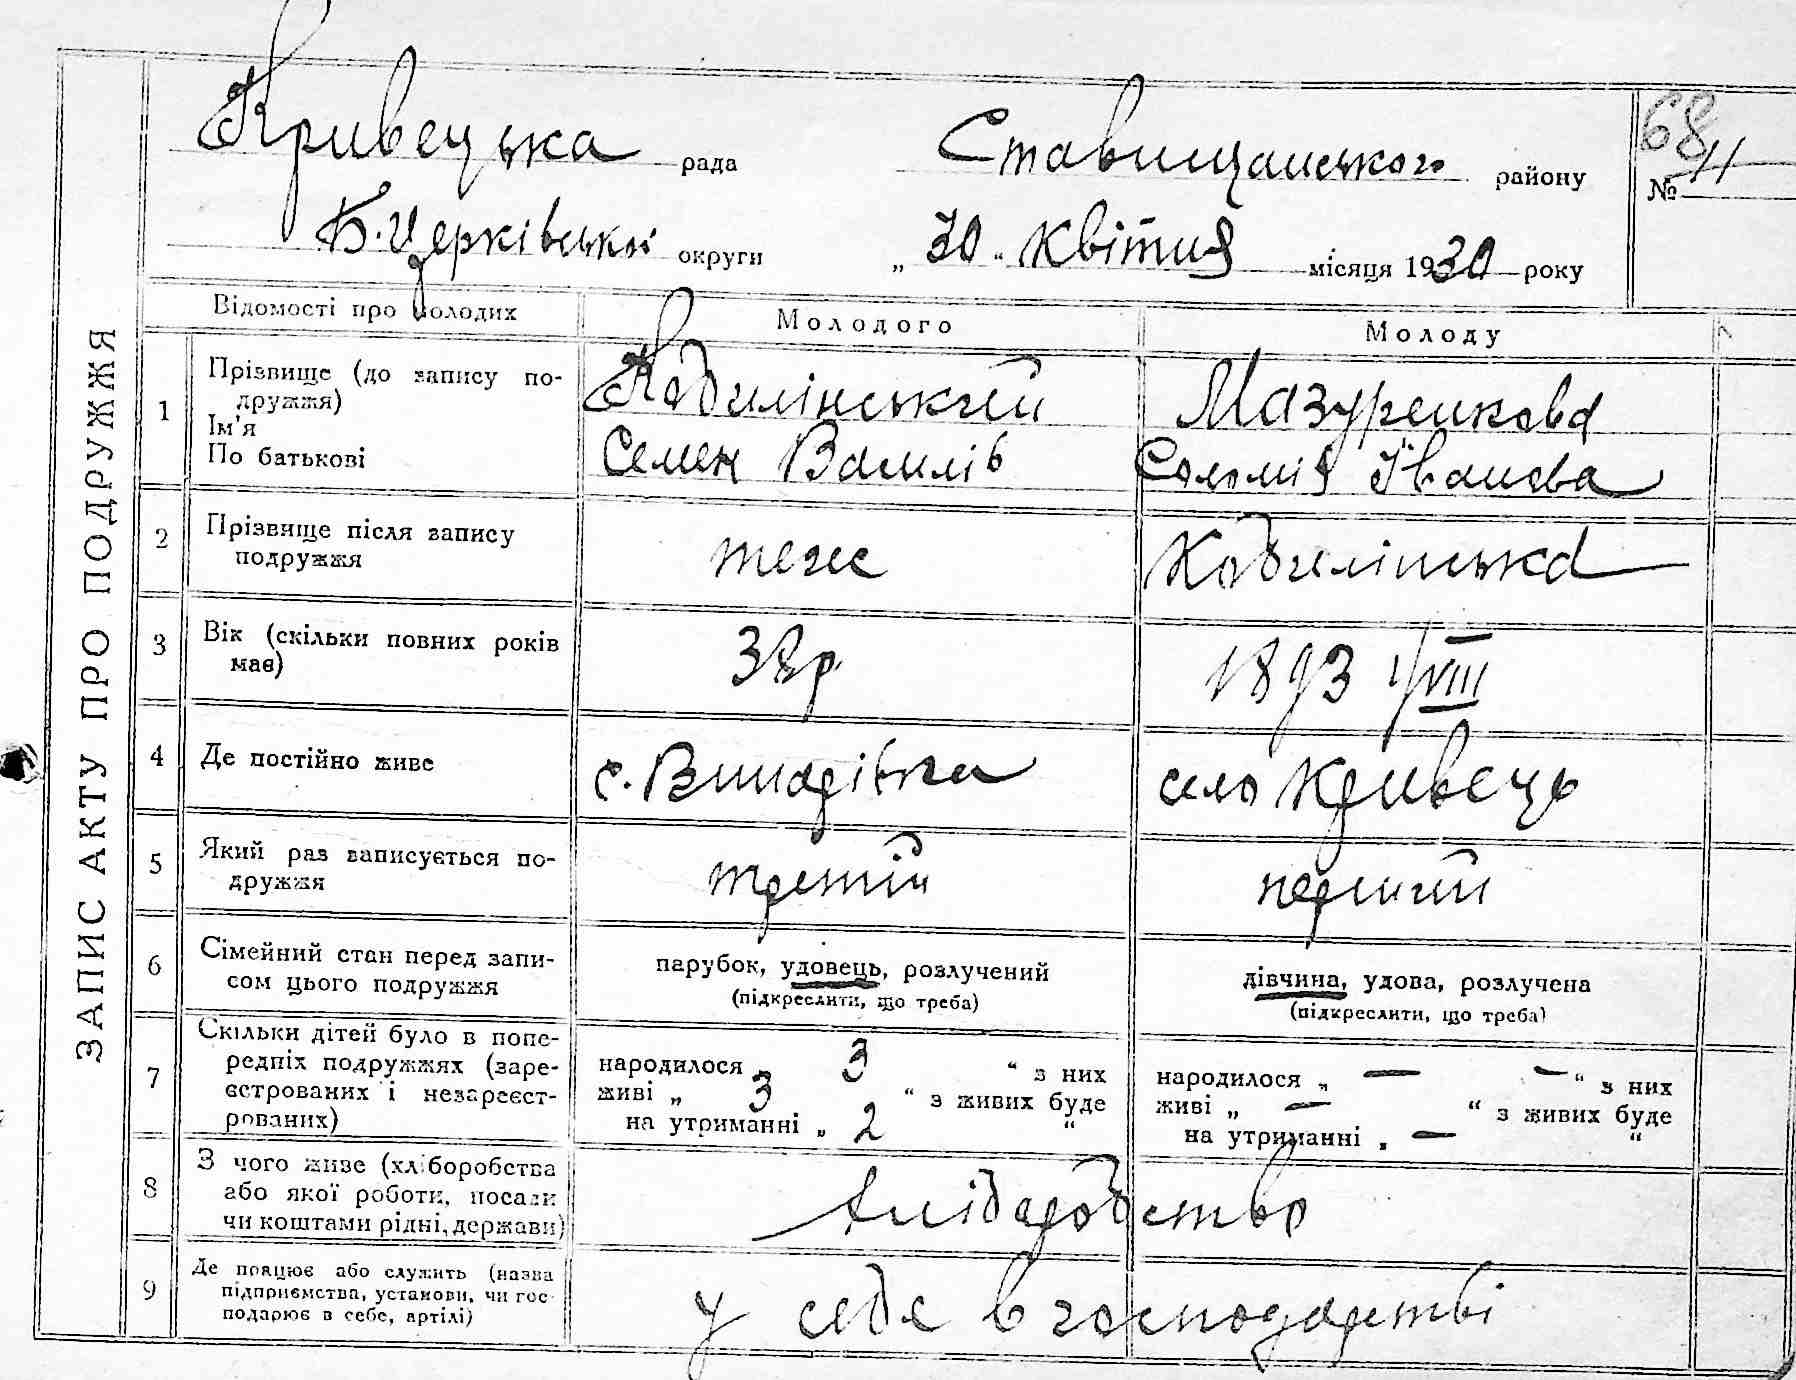 ЗАПИС АКТУ ПРО ПОДРУЖЖЯ
Кривецька рада Ставищанського району
68
№ 11
Б. Церківської округи „ 30 “ Квітня місяця 1930 року
Відомості про молодих Молодого Молоду
1 Прізвище (до запису подружжя) Кобилінський Мазуренкова
Ім'я
По батькові Семен Василів Соломія Іванова
2 Прізвище після запису подружжя теж Кобилінська
3 Вік (скільки повних років має) 38 р 1893 1/VIII
4 Де постійно живе с. Винарівка село Кривець
5 Який раз записується подружжя третій перший
6 Сімейний стан перед записом цього подружжя парубок, удовець, розлучений дівчина, удова, розлучена
(підкреслити, що треба) (підкреслити, що треба)
7 Скільки дітей було в попередніх подружжях (зареєстрованих і незареєстрованих)
народилося „ 3 “ з них народилося „ — — “ з них
живі „ 3 “ з живих буде живі „ — “ з живих буде
на утриманні „ 2 “ на утриманні „ — “
8 З чого живе (хліборобства або якої роботи, посади чи коштами рідні, держави) хліборобство
9 Де працює або служить (назва підприємства, установи, чи господарює в себе, артілі) у себе в господарстві